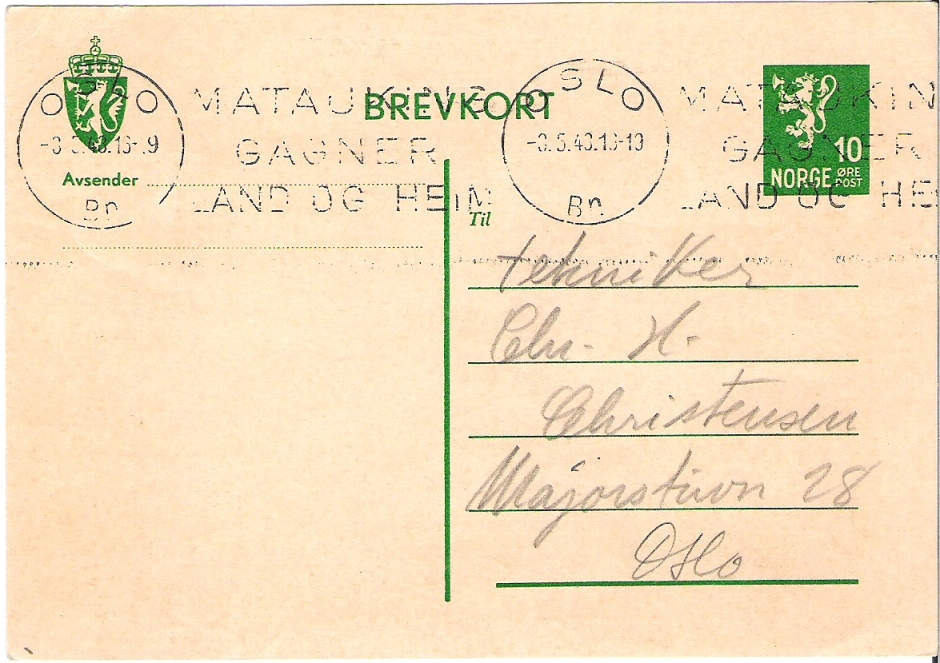 BREVKORT
OSLO
-3.5.43.18-19
Br.
MATAUKING
GAGNER
LAND OG HEIM
OSLO
-3.5.43.18-19
Br.
MATAUKIN
GAGNER
LAND OG HEI
10
NORGE ØRE POST
Avsender
Til
tekniker
Chr. H.
Christensen
Majorstuvn 28
Oslo